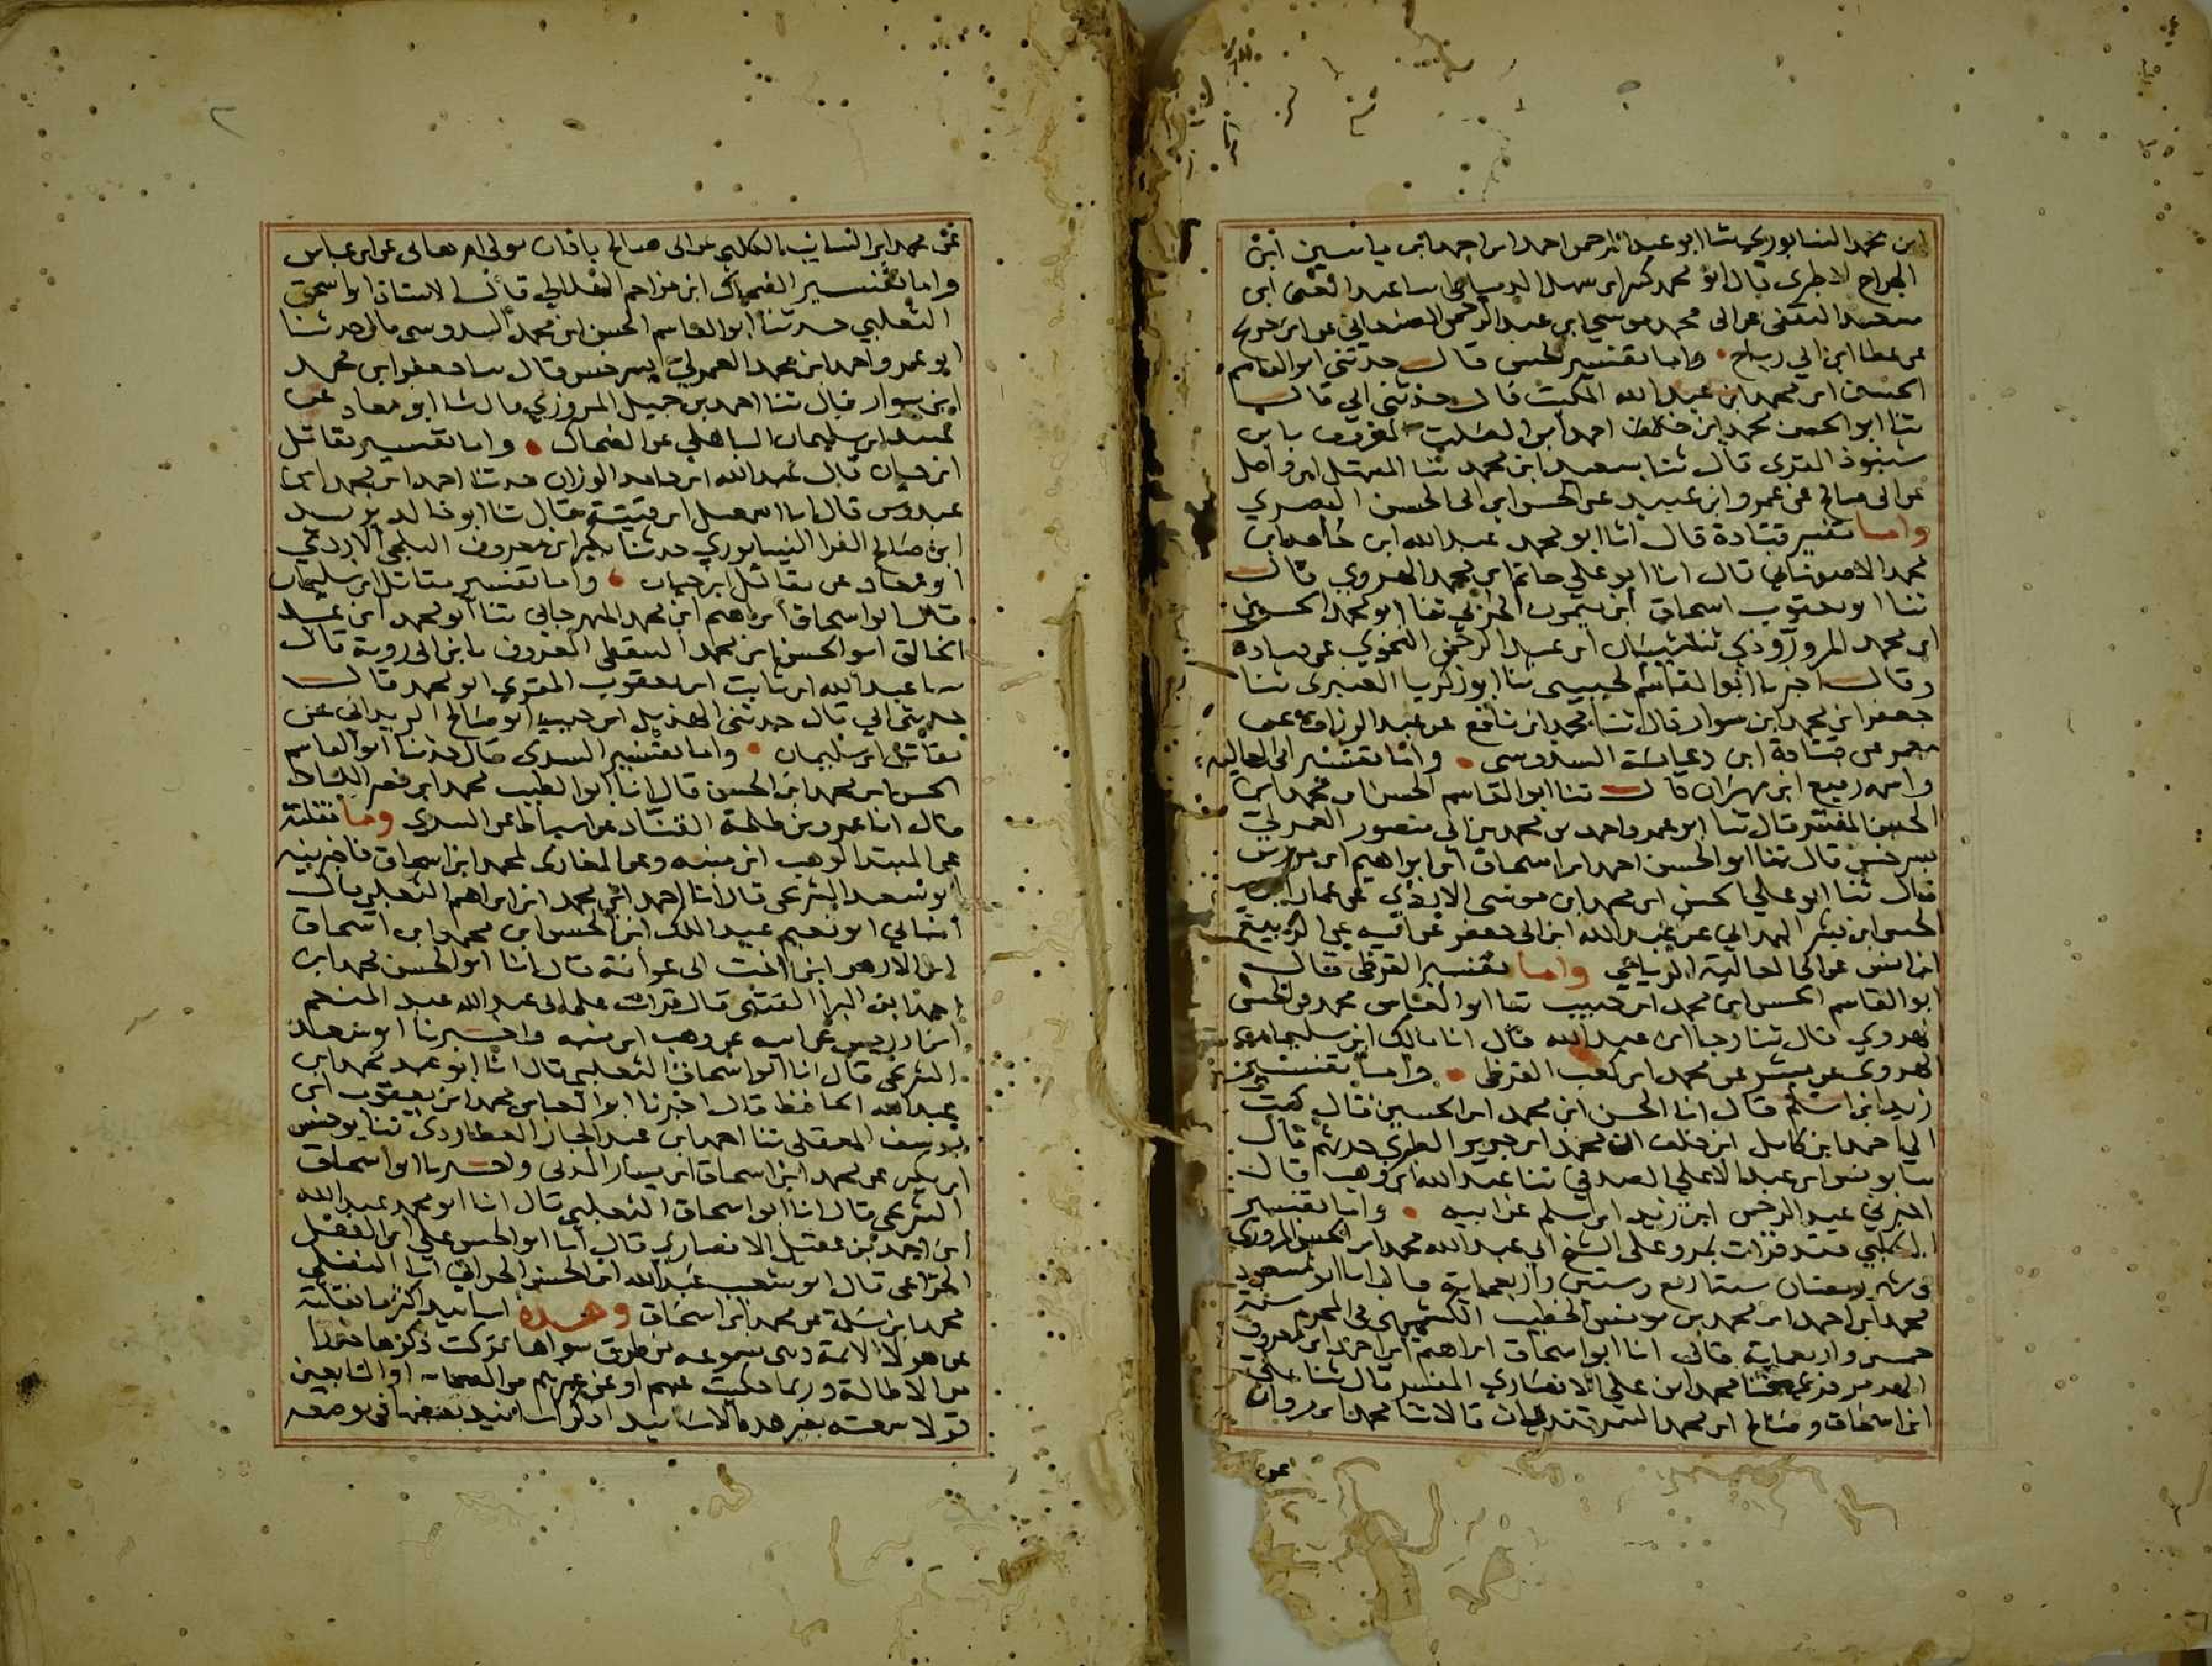 ابن محمد النيسابوري ثنا ابو عبد الرحمن احمد ابن احمد ابن ياسين ابن
الجراح الاطرى قال ابو محمد بكر ابن سهل الدمياطى ثنا عبد الغنى ابن
سعيد الثقفى عن ابى محمد موسى ابن عبد الرحمن الصنعانى عن ابن جريج
عن عطا ابن ابي رباح واما تفسير الحسن قال حدثنى ابو القاسم
الحسن ابن محمد ابن عبد الله المكتب قال حدثنى ابي قال
ثنا ابو الحسن محمد ابن احمد ابن الصلت المعروف بابن
شنبوذ المقرى قال ثنا سعيد ابن محمد ثنا المنهل ابن واصل
عن ابى صالح عن عمرو ابن عبيد عن الحسن ابن ابى الحسن البصري
واما تفسير قتادة قال انا ابو محمد عبد الله ابن حامد ابن
محمد الاصفهانى قال انا ابو علي حامد ابن محمد الهروي قال
ثنا ابو يعقوب اسحاق ابن الحربي ثنا ابو محمد الحسين
ابن محمد المروروذي ثنا شيبان ابن عبد الرحمن النحوي عن قتاده
وقال اخبرنا ابو القاسم الحبيبى ثنا ابو زكريا العنبرى ثنا
جعفر ابن محمد ابن سوار قال ثنا محمد ابن رافع عن عبد الرزاق عن
معمر عن قتادة ابن دعامة السدوسى واما تفسير ابى العاليه
واسمه ربيع ابن مهران قال ثنا ابو القاسم الحسن ابن محمد ابن
الحسن المفسر قال ثنا ابو عمرو احمد بن محمد بن ابى منصور العمركى
بسرخس قال ثنا ابو الحسن احمد ابن اسحاق ابن ابراهيم ابن
قال ثنا ابو علي الحسن ابن محمد ابن موسى الازدي عن عمار ابن
الحسن ابن بشر الهمداني عن عبد الله ابن ابى جعفر عن ابيه عن الربيع
ابن انس عن ابى العالية الرياحي واما تفسير القرظى قال
ابو القاسم الحسن ابن محمد ابن حبيب ثنا ابو العباس محمد بن الحسن
الهروي قال ثنا رجا ابن عبد الله قال انا مالك ابن سليمان
الهروى عن محمد ابن كعب القرظى واما تفسير
زيد ابن اسلم قال انا الحسن ابن محمد ابن الحسين قال كتب
الي احمد ابن كامل ابن خلف ان محمد ابن جرير الطبري حدثهم قال
ثنا يونس ابن عبد الاعلى الصدفي ثنا عبد الله ابن وهب قال
اخبرني عبد الرحمن ابن زيد ابن اسلم عن ابيه واما تفسير
الكلبي فقد قرات بمرو على الشيخ ابى عبد الله محمد ابن الحسن المروزى
فى شهر رمضان سنة اربع وستين واربعماية قال انا ابو مسعود
محمد ابن احمد ابن محمد بن يونس الخطيب الكشميهنى فى المحرم سنة
خمس واربعماية قال انا ابو اسحاق ابراهيم ابن احمد ابن المعروف
ثنا محمد ابن علي الانصاري المفسر قال ثنا علي
ابن اسحاق وصالح ابن محمد السمرقنديان قالا ثنا محمد ابن مروان
عن
عن محمد ابن السائب الكلبي عن ابى صالح باذان مولى ام هانى عن ابن عباس
واما تفسير الضحاك ابن مزاحم الهلالي قال الاستاذ ابو اسحق
الثعلبي حدثنا ابو القاسم الحسن ابن محمد السدوسى قال حدثنا
ابو عمرو احمد ابن محمد العمركي بسرخس قال ثنا جعفر ابن محمد
ابن سوار قال ثنا احمد بن جميل المروزي قال ثنا ابو معاذ عن
عبيد ابن سليمان الباهلي عن الضحاك واما تفسير مقاتل
ابن حيان قال عبد الله ابن حامد الوزان حدثنا احمد ابن محمد ابن
عبدوس قال انا اسمعيل ابن قتيبة قال ثنا ابو خالد يزيد
ابن صالح الفرا النيسابوري حدثنا بكير ابن معروف البلخي الازدي
ابو معاد عن مقاتل ابن حيان واما تفسير مقاتل ابن سليمان
قال ابو اسحاق ابراهيم ابن محمد المهرجاني ثنا ابو محمد ابن
الخالق ابو الحسن ابن محمد السقطي المعروف بابن ابى روبة قال
ثنا عبد الله ابن ثابت ابن يعقوب المقري ابو محمد قال
حدثني ابي قال حدثنى الهذيل ابن حبيب ابو صالح الزيدانى عن
مقاتل ابن سليمان واما تفسير السدى قال حدثنا ابو القاسم
الحسن ابن محمد ابن الحسن قال انا ابو الطيب محمد ابن نصر اللباد
قال انا عمرو بن طلحة القناد عن اسباط عن السدي وما نقلته
عن المبتدا لوهب ابن منبه وعن المغازى لمحمد ابن اسحاق فاخبرنيه
ابو سعد الشريحى قال انا احمد ابن محمد ابن ابراهيم الثعلبى قال
انبانى ابو نعيم عبد الملك ابن الحسن ابن محمد ابن اسحاق
ابن الازهر ابن اخت ابى عوانة قال انا ابو الحسن محمد ابن
احمد ابن البرا العبدى قال قرات على ابى عبد الله عبد المنعم
ابن ادريس عن ابيه عن وهب ابن منبه واخبرنا ابو سعد
الشريحى قال انا ابو اسحاق الثعلبى قال انا ابو عبد محمد ابن
عبد الله الحافظ قال اخبرنا ابو العباس محمد ابن يعقوب ابن
يوسف المعقلى ثنا احمد ابن عبد الجبار العطاردى ثنا يونس
ابن بكير عن محمد ابن اسحاق ابن يسار المدنى واخبرنا ابو اسحاق
الشريحى قال انا ابو اسحاق الثعلبى قال انا ابو محمد عبد الله
ابن احمد بن عقيل الانصاري قال انا ابو الحسن علي ابن الفضل
الخزاعى قال ابو شعيب عبد الله ابن الحسن الحراني انا النفيلى
محمد ابن سلمة عن محمد ابن اسحاق وهذه اسانيد اكثر ما نقلته
عن هولا الائمة وهى مسموعه من طرق سواها تركت ذكرها حذرا
من الاطالة وربما حكيت عنهم او عن غيرهم من الصحابه او التابعين
قولا سمعته بغير هذه الاسانيد اذكر اسانيد بعضها فى موضعه